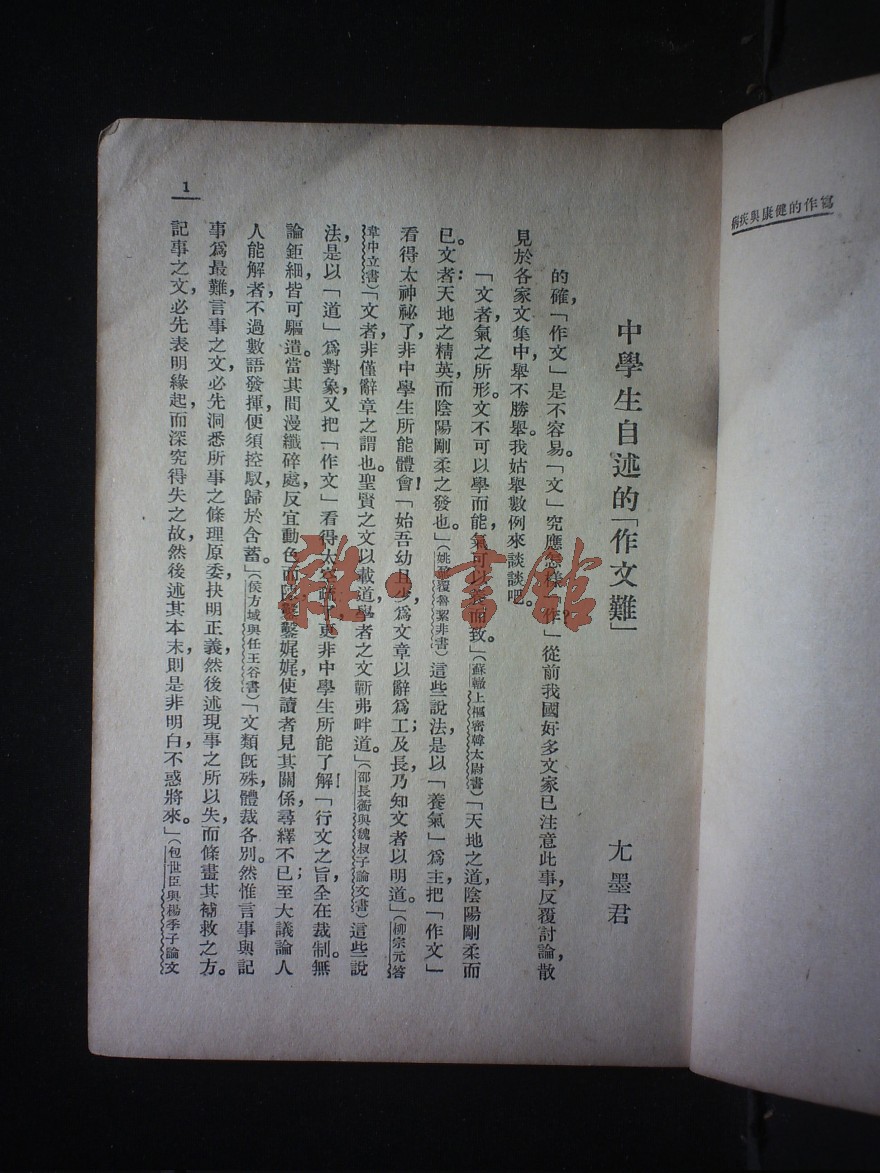 寫作的健康與疾病
中學生自述的「作文難」
尤墨君
的確，「作文」是不容易。「文」究應怎樣「作」？從前我國好多文家已注意此事，反覆討論，散
見於各家文集中，舉不勝舉。我姑舉數例來談談吧。
「文者，氣之所形。文不可以學而能，氣可以養而致。」（蘇轍上樞密韓太尉書）「天地之道，陰陽剛柔而
已。文者：天地之精英，而陰陽剛柔之發也。」（姚鼐覆魯絜非書）這些說法，是以「養氣」爲主，把「作文」
看得太神祕了，非中學生所能體會！「始吾幼且少，爲文章以辭爲工；及長，乃知文者以明道。」（柳宗元答
韋中立書）「文者，非僅辭章之謂也。聖賢之文以載道，學者之文蘄弗畔道。」（邵長蘅與魏叔子論文書）這些說
法，是以「道」爲對象，又把「作文」看得太空疏了，更非中學生所能了解！「行文之旨，全在裁制。無
論鉅細，皆可驅遣。當其間漫纖碎處，反宜動色而陳，鑿鑿娓娓，使讀者見其關係，尋繹不已；至大議論，人
人能解者，不過數語發揮，便須控馭，歸於含蓄。」（侯方域與任王谷書）「文類旣殊，體裁各別。然惟言事與記
事爲最難，言事之文，必先洞悉所事之條理原委，抉明正義，然後述現事之所以失，而條畫其補救之方。
記事之文，必先表明緣起，而深究得失之故，然後述其本末，則是非明白，不惑將來。」（包世臣與楊季子論文
1
雜·書館